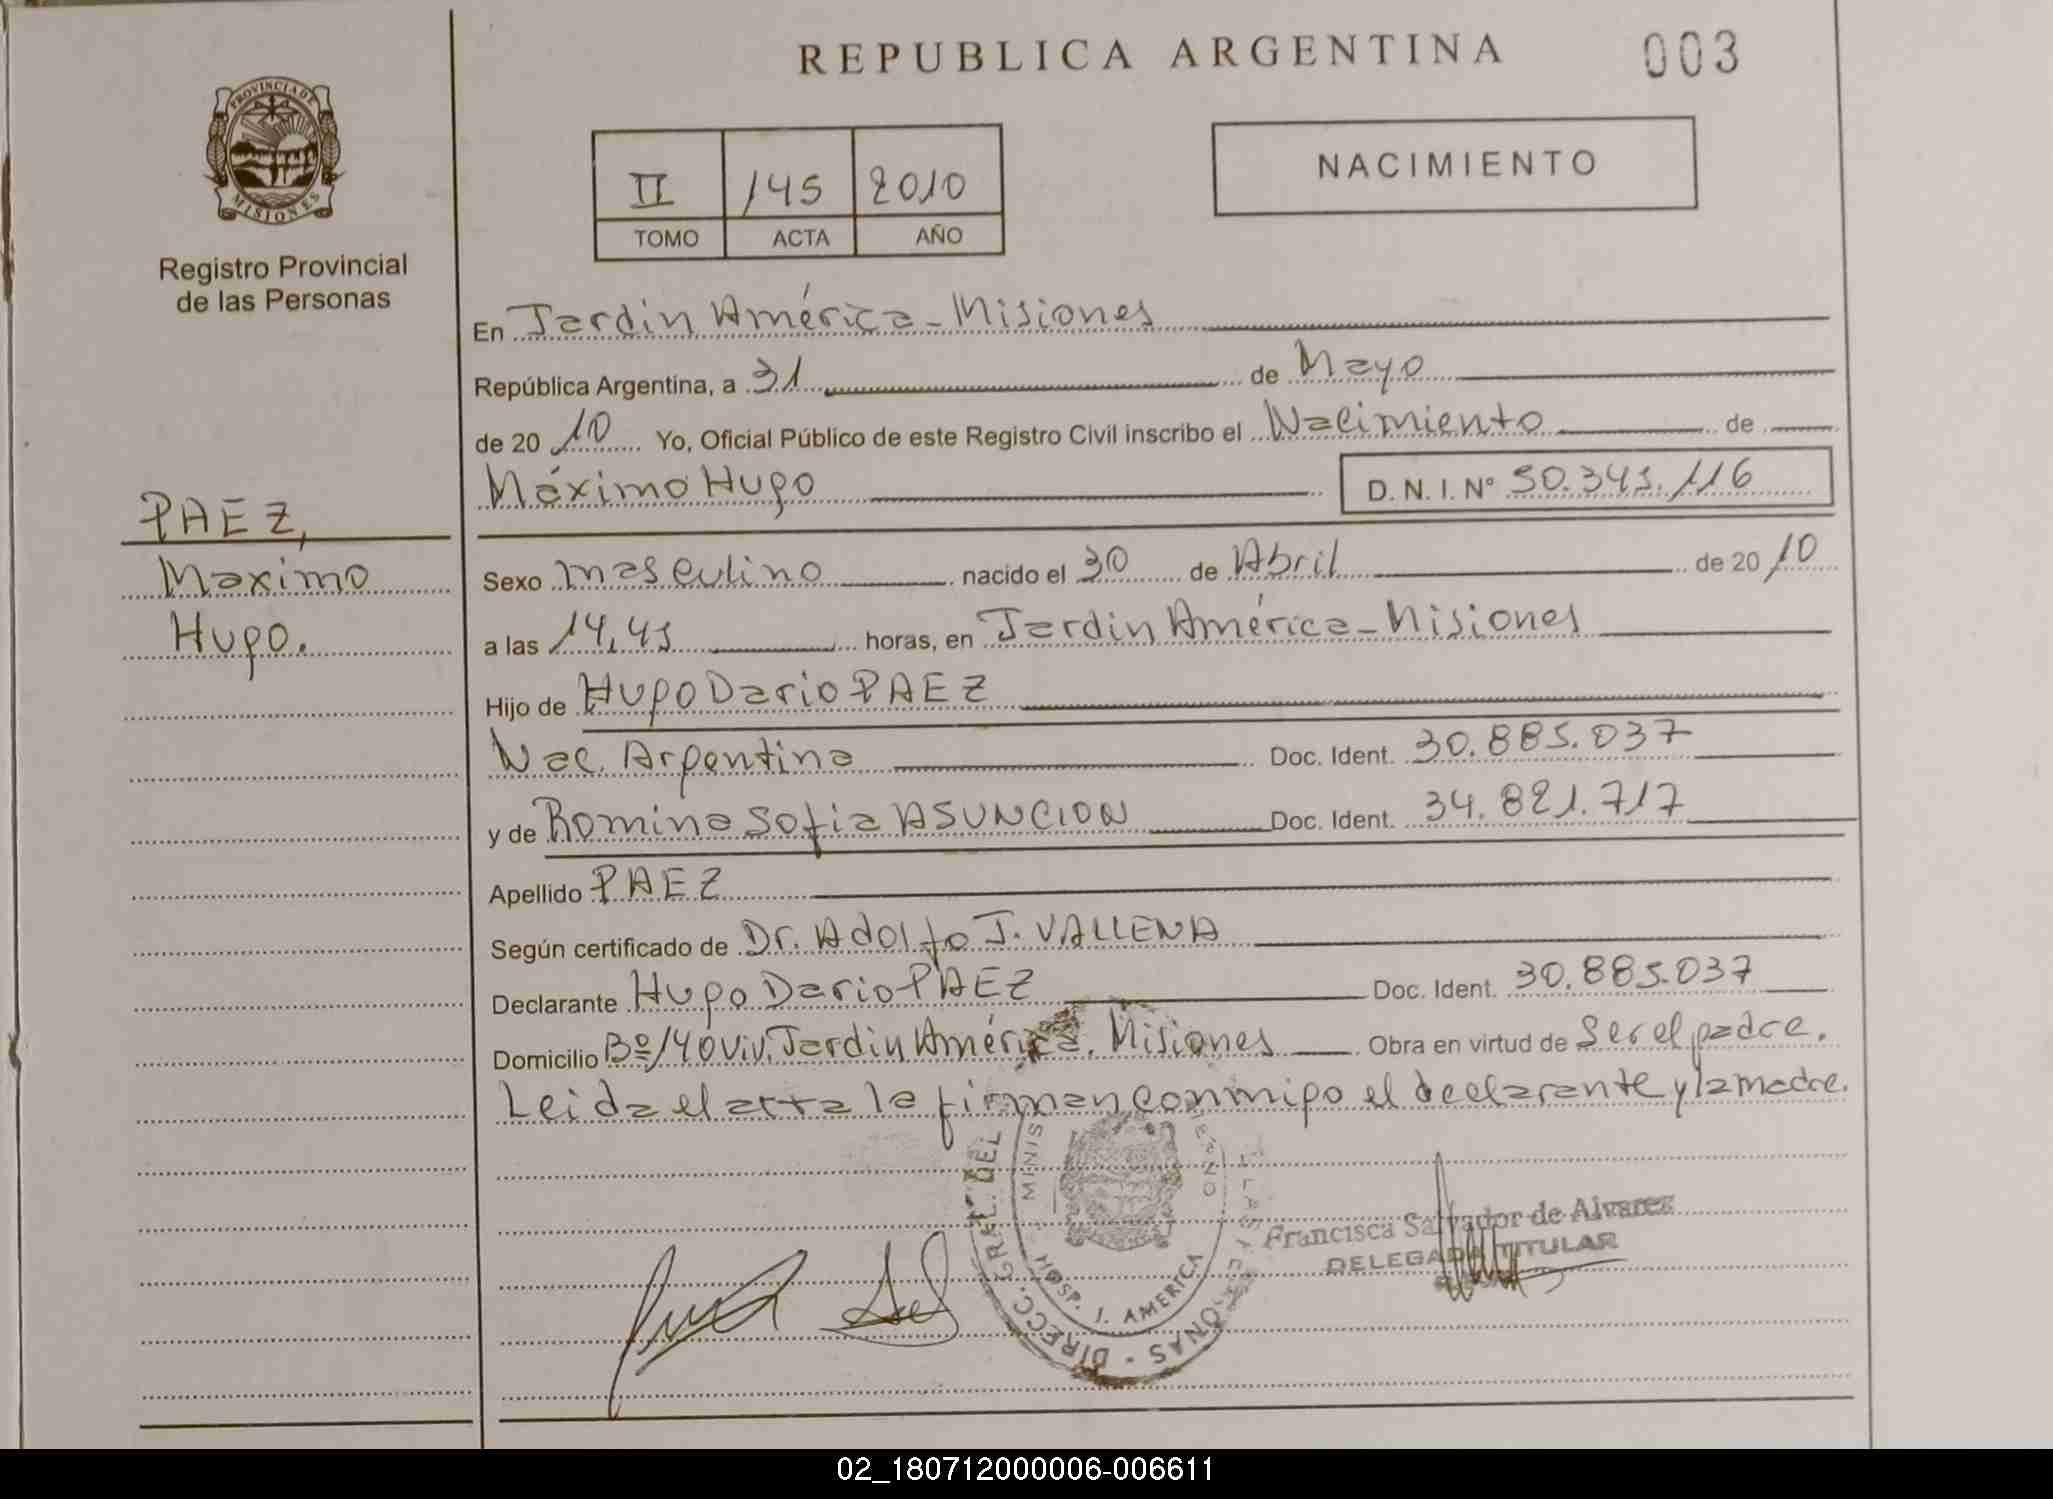 REPUBLICA ARGENTINA
003
PROVINCIA DE
MISIONES
Registro Provincial
de las Personas
II 145 2010
TOMO ACTA AÑO
NACIMIENTO
En Jardin América - Misiones
República Argentina, a 31 de Mayo
de 20 10 Yo, Oficial Público de este Registro Civil inscribo el Nacimiento de
Máximo Hugo D. N. I. N° 50.341.116
PAEZ,
Maximo
Hugo.
Sexo masculino nacido el 30 de Abril de 20 10
a las 14,45 horas, en Jardin América - Misiones
Hijo de Hugo Dario PAEZ
Nac. Argentina Doc. Ident. 30.885.037
y de Romina Sofia ASUNCION Doc. Ident. 34.821.717
Apellido PAEZ
Según certificado de Dr. Adolfo J. VALLENA
Declarante Hugo Dario PAEZ Doc. Ident. 30.885.037
Domicilio Bº/40 viv. Jardin América. Misiones Obra en virtud de Ser el padre.
Leida el acta la firman conmigo el declarante y la madre.
DIRECC. GRAL. DEL
HOSP. J. AMERICA
Francisca Salvador de Alvarez
DELEGADA TITULAR
02_180712000006-006611